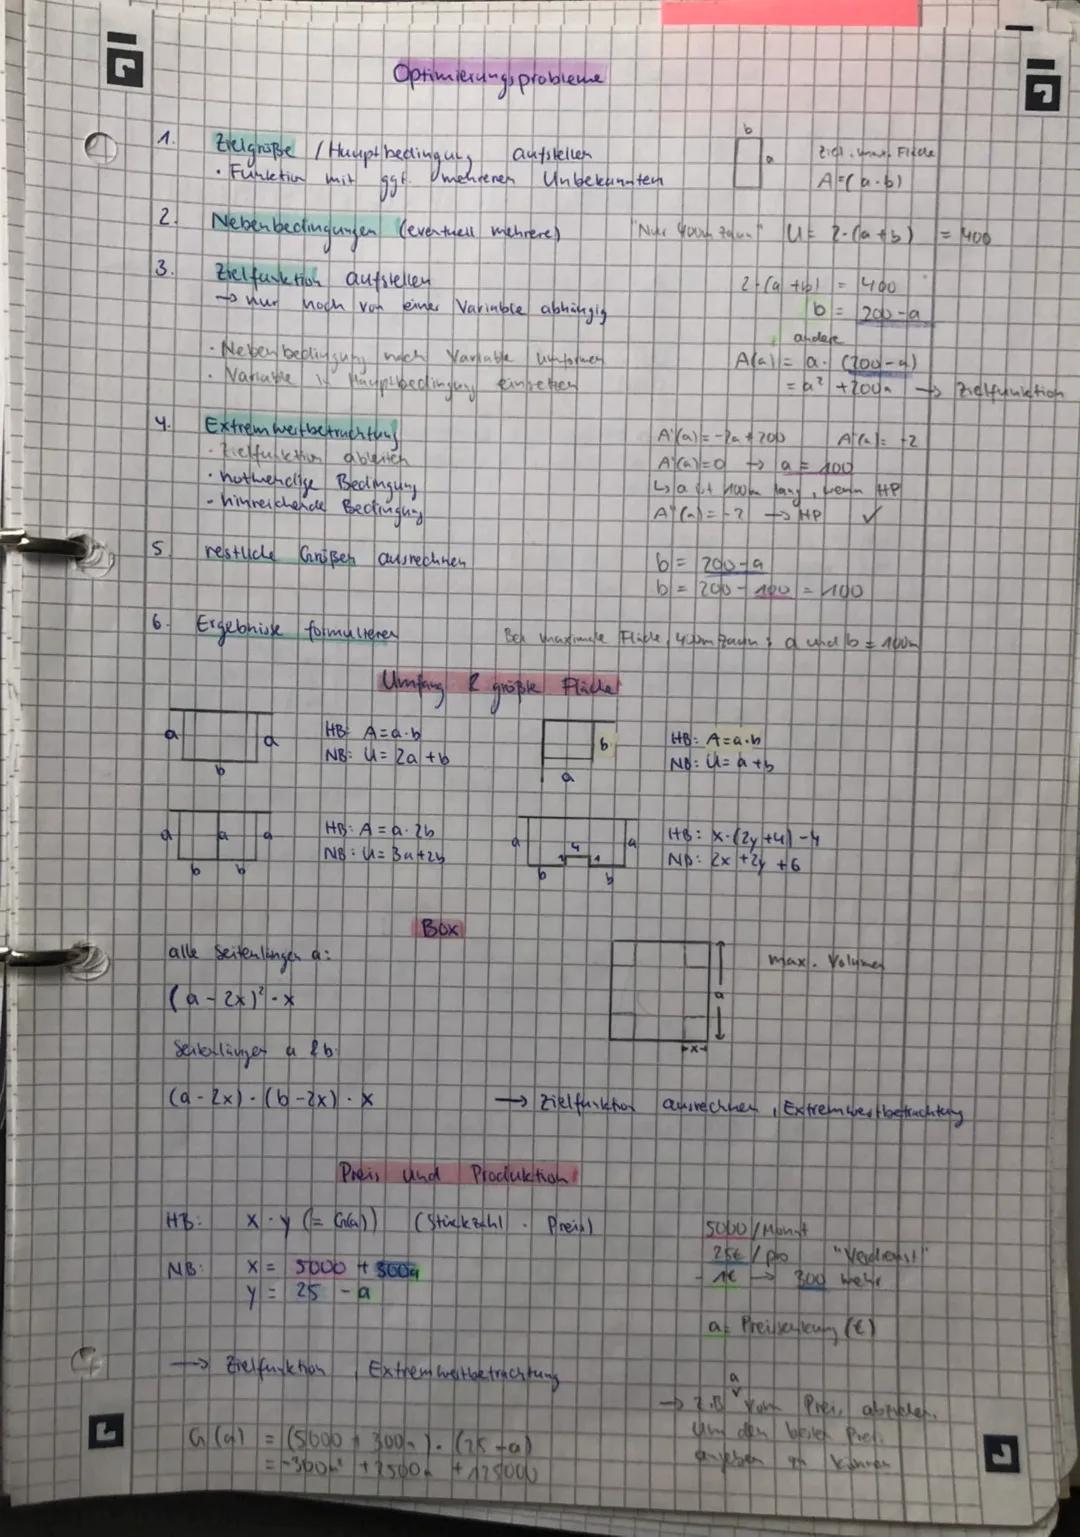 Optimierungsprobleme
1. Zielgröße / Hauptbedingung aufstellen
• Funktion mit ggf. mehreren Unbekannten
b
a
Ziel: max. Fläche
A=(a·b)
2. Nebenbedingungen (eventuell mehrere)
"Nur 400m Zaun" U= 2·(a+b) = 400
3. Zielfunktion aufstellen
→ nur noch von einer Variable abhängig
2·(a+b) = 400
b = 200-a
• Nebenbedingung nach Variable umformen
andere
• Variable in Hauptbedingung einsetzen
A(a) = a·(200-a)
= a² +200a → Zielfunktion
4. Extremwertbetrachtung
• Zielfunktion ableiten
• notwendige Bedingung
• hinreichende Bedingung
A'(a) = -2a+200 A''(a) = -2
A'(a)=0 → a = 100
↳ a ist 100m lang, wenn HP
A''(a) = -2 → HP ✓
5. restliche Größen ausrechnen
b = 200-a
b = 200-100 = 100
6. Ergebnisse formulieren
Bei maximale Fläche, 400m Zaun: a und b = 100m
Umfang & größte Fläche
a
a
b
HB: A=a·b
NB: U= 2a+b
b
a
HB: A=a·b
NB: U= a+b
a
a
a
b
b
HB: A = a·2b
NB: U= 3a+2b
a
4
1
1
a
b
b
HB: x·(2y+4)-4
NB: 2x+2y+6
Box
alle Seitenlängen a:
(a-2x)²·x
max. Volumen
a
x
Seitenlängen a & b:
(a-2x)·(b-2x)·x
→ Zielfunktion ausrechnen, Extremwertbetrachtung
Preis und Produktion
HB: x·y (= G(a)) (Stückzahl · Preis)
NB: x = 5000 + 300a
y = 25 - a
5000/Monat
25€/pro "Verdienst"
-1€ → 300 mehr
a= Preissenkung (€)
→ Zielfunktion, Extremwertbetrachtung
a
→ z.B. vom Preis abziehen,
um den besten Preis
angeben zu können
G(a) = (5000 + 300a)·(25-a)
= -300a² +2500a +125000